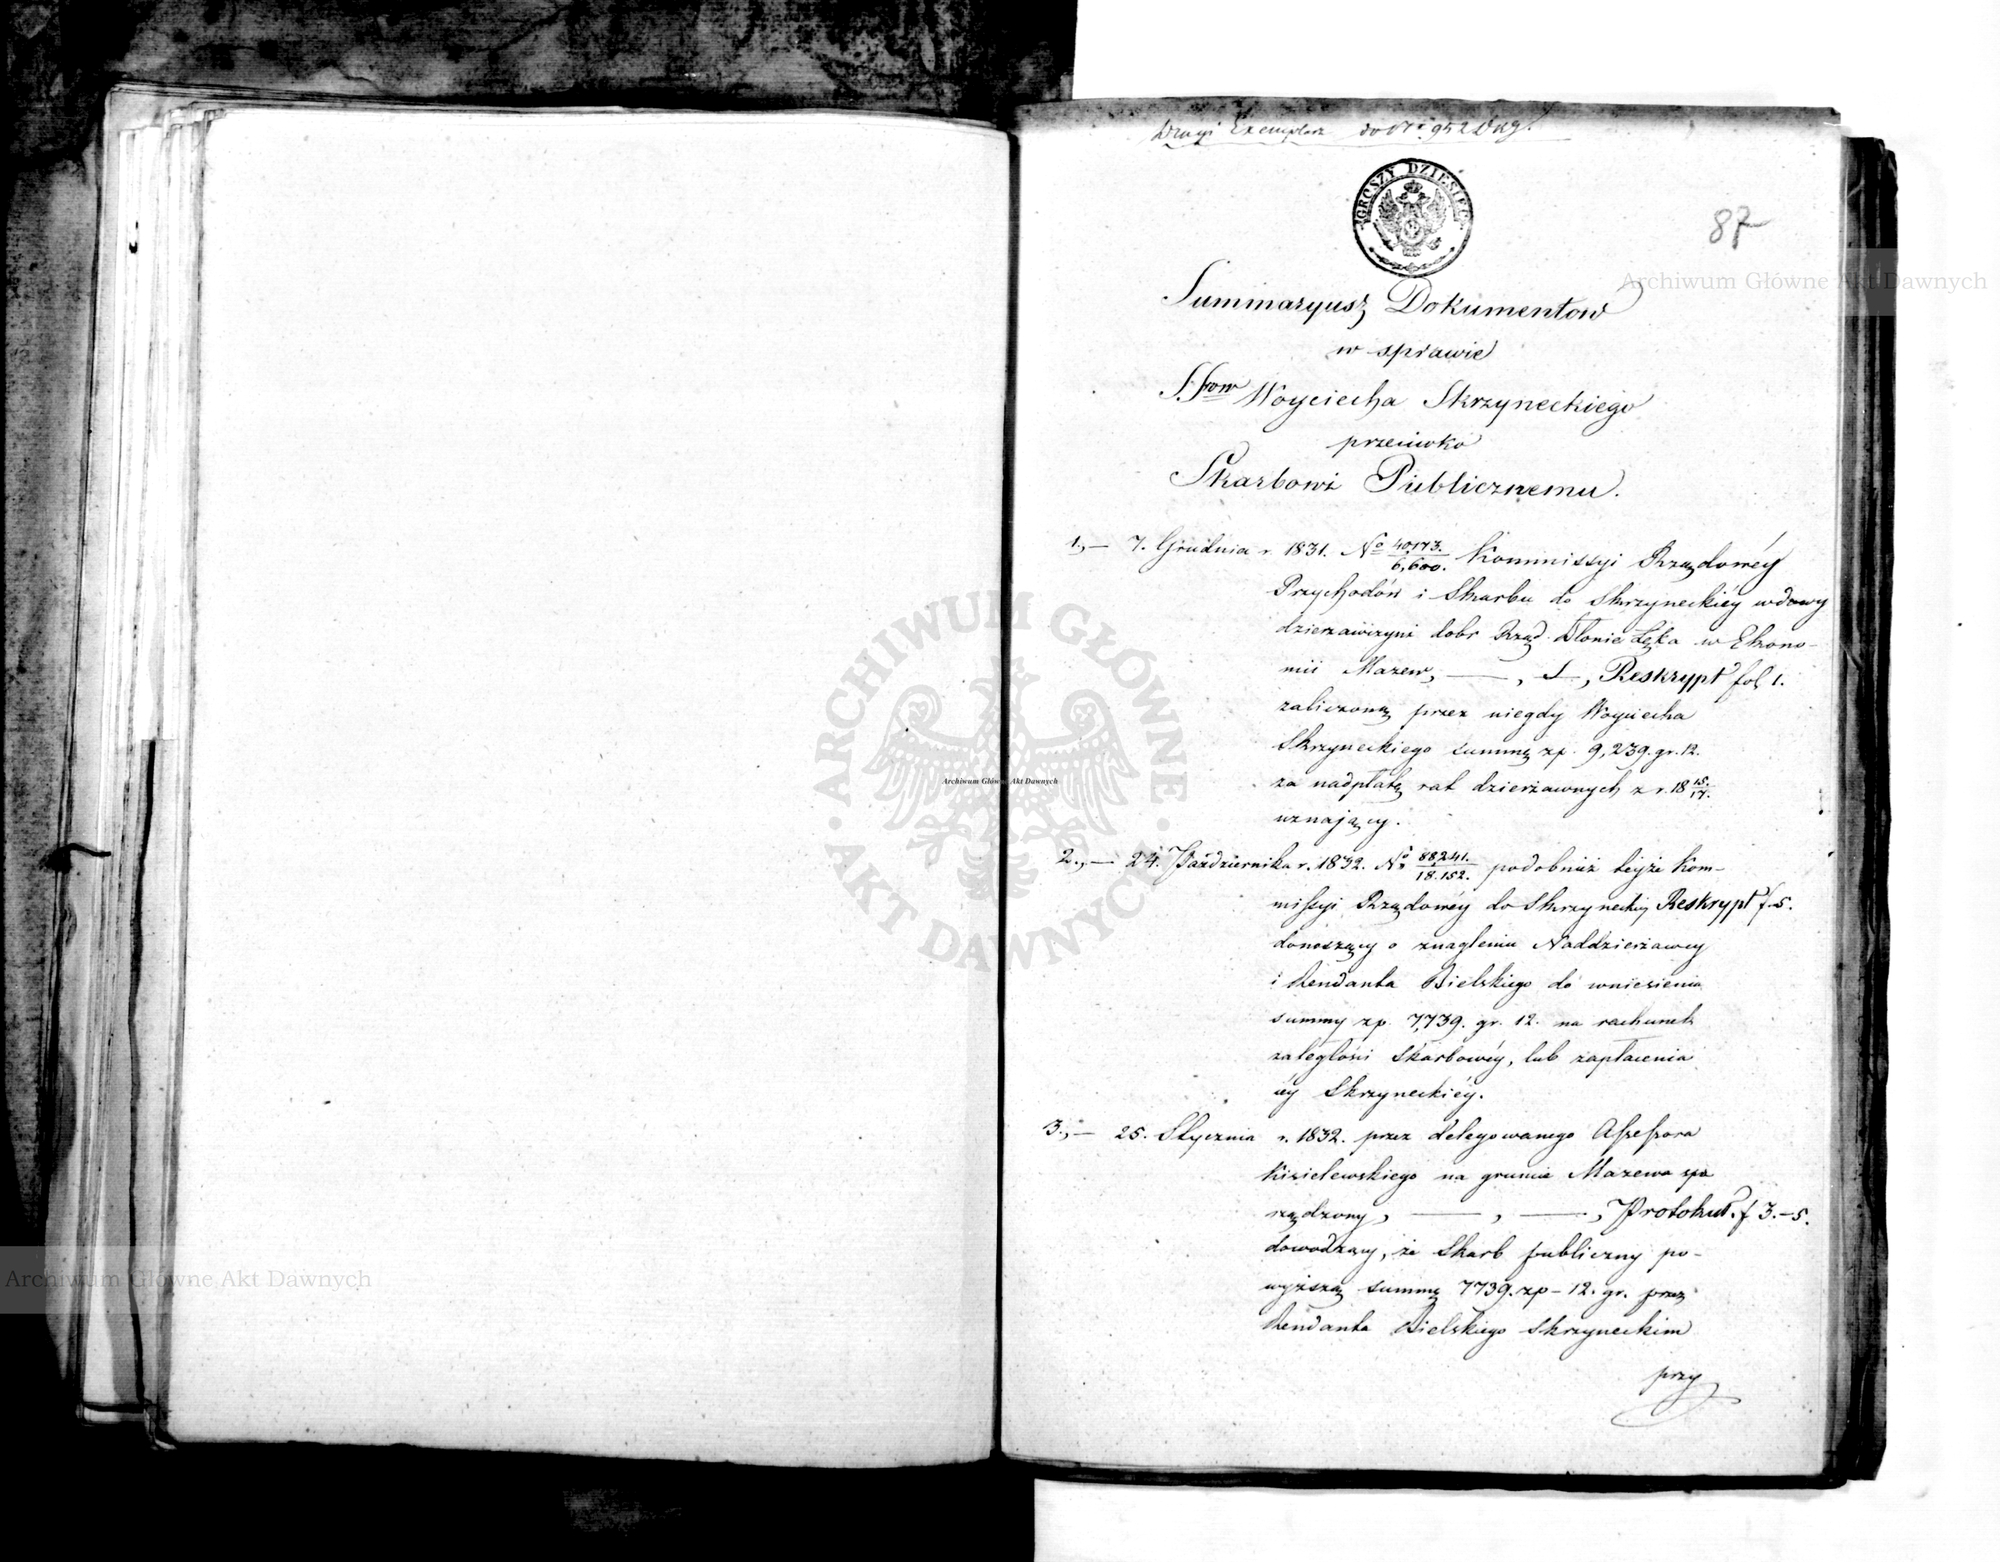 Drugi Exemplarz do Nr 952
GROSZY DZIESIĘĆ
87
Archiwum Główne Akt Dawnych
Summaryusz Dokumentow
w sprawie
S.Srow Woyciecha Skrzyneckiego
przeciwko
Skarbowi Publicznemu.
1., — 7. Grudnia r. 1831. No 40,173./6,600. Kommissyi Rządowéy
Przychodów i Skarbu do Skrzyneckiéy wdowy
dzierzawczyni dobr Rząd. Błonie Łęka w Ekono-
mii Mazew, — , — , Reskrypt fol 1.
zaliczoną przez niegdy Woyciecha
Skrzyneckiego summę zp. 9,239. gr. 12.
za nadpłatę rat dzierżawnych z r. 18 15/17.
uznający.
2., — 24. Października r. 1832. No 88,241./18.152. podobnież teyże Kom-
missyi Rządowéy do Skrzyneckiey Reskrypt f. 5.
donoszący o znagleniu Naddzierżawcy
i Rendanta Bielskiego do wniesienia
summy zp. 7,739. gr. 12. na rachunek
zaległości Skarbowéy, lub zapłacenia
iéy Skrzyneckiéy.
3., — 25. Stycznia r. 1832. przez delegowanego Assessora
Kisielewskiego na gruncie Mazewa spo
rządzony, — , — , Protokuł. f 3.-5.
dowodzący, że Skarb publiczny po-
wyższą summę 7739. zp - 12. gr. przez
Rendanta Bielskiego Skrzyneckim
przy
ARCHIWUM GŁÓWNE AKT DAWNYCH
Archiwum Główne Akt Dawnych
Archiwum Główne Akt Dawnych